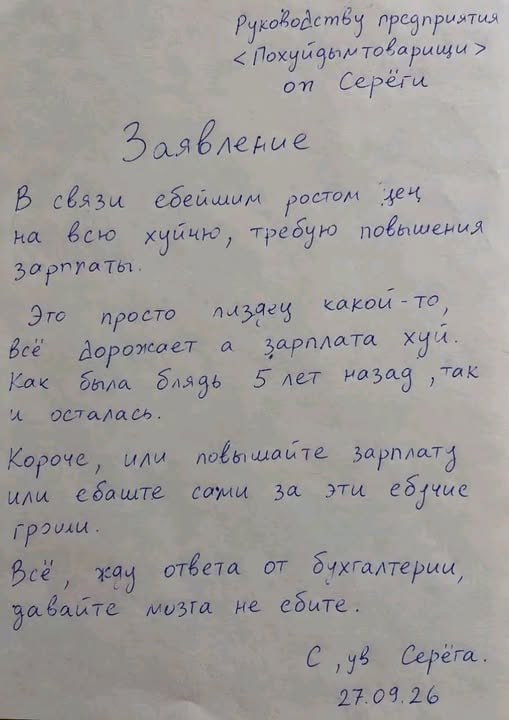 Руководству предприятия
<Похуйдымтоварищи>
от Серёги
Заявление
В связи ебейшим ростом цен
на всю хуйню, требую повышения
зарплаты.
Это просто пиздец какой-то,
всё дорожает а зарплата хуй.
Как была блядь 5 лет назад, так
и осталась.
Короче, или повышайте зарплату
или ебаште сами за эти ебучие
гроши.
Всё, жду ответа от бухгалтерии,
давайте мозга не ебите.
С, ув Серёга.
27.09.26